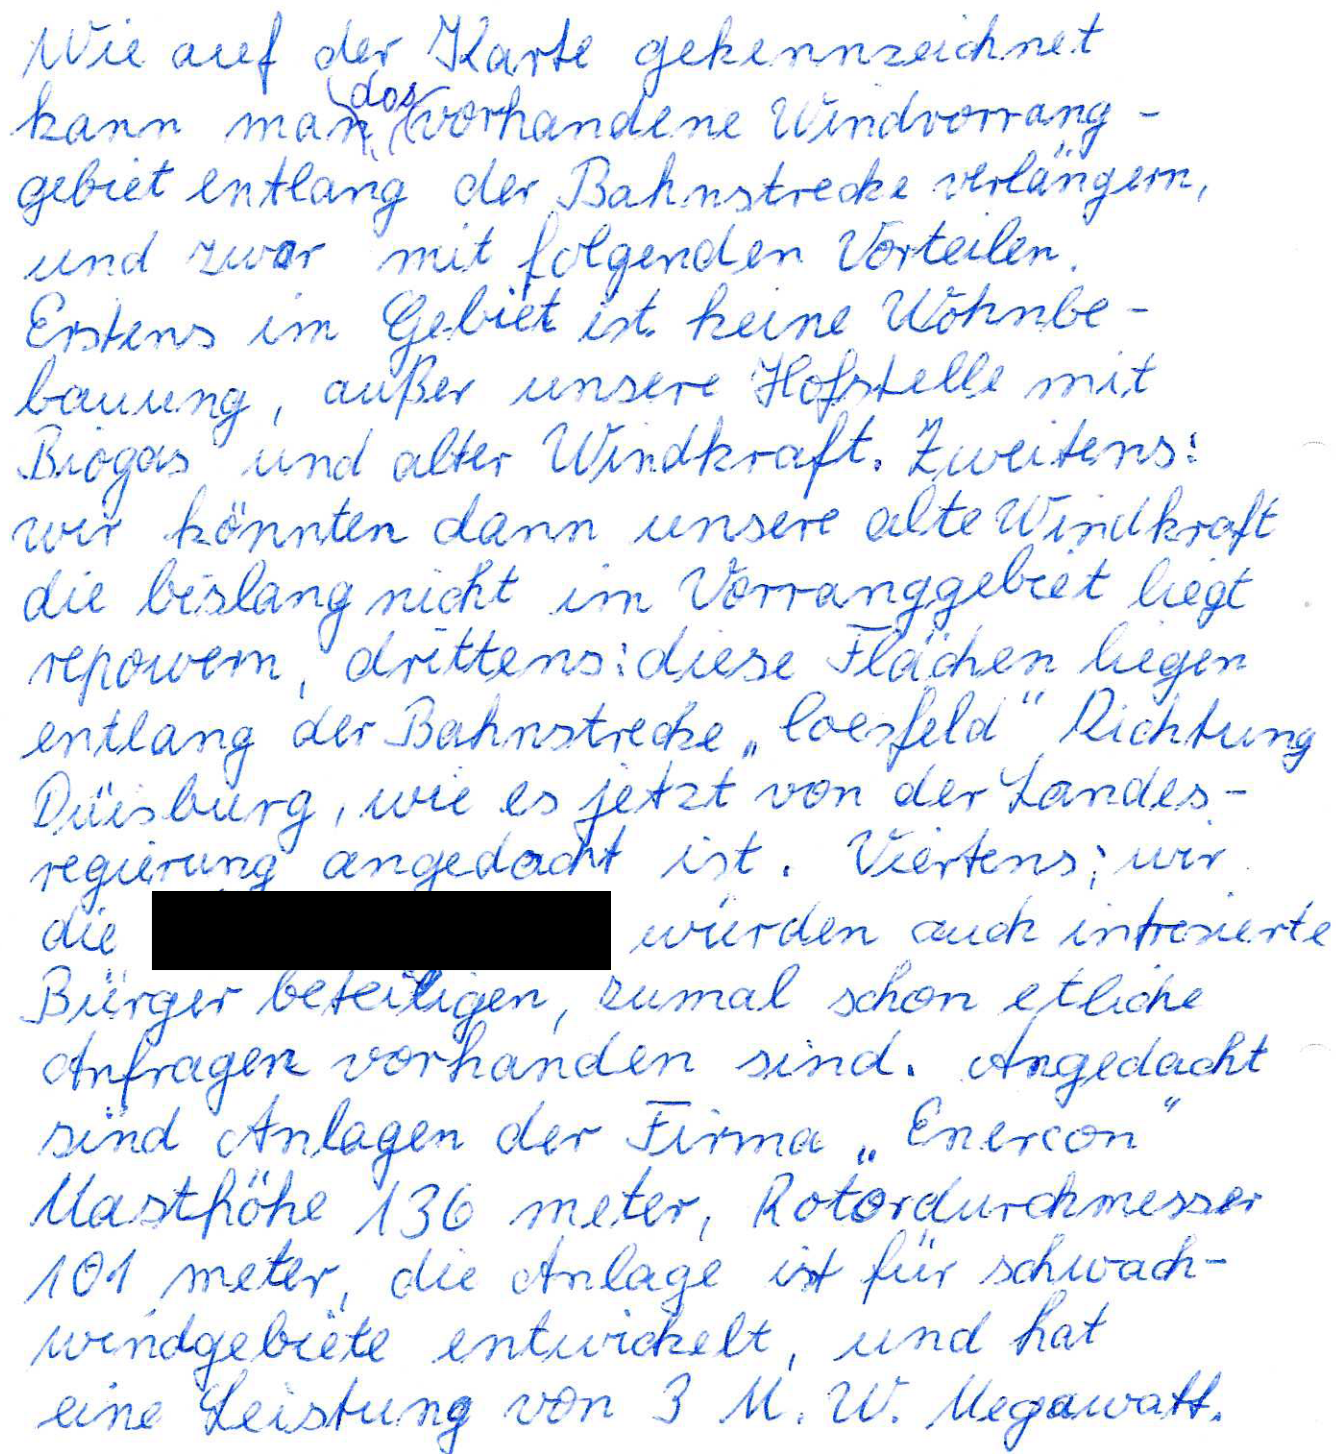 Wie auf der Karte gekennzeichnet
kann man das vorhandene Windvorrang-
gebiet entlang der Bahnstrecke verlängern,
und zwar mit folgenden Vorteilen.
Erstens im Gebiet ist keine Wohnbe-
bauung, außer unsere Hofstelle mit
Biogas und alter Windkraft. Zweitens:
wir könnten dann unsere alte Windkraft
die bislang nicht im Vorranggebiet liegt
repowern, drittens: diese Flächen liegen
entlang der Bahnstrecke „Coesfeld" Richtung
Duisburg, wie es jetzt von der Landes-
regierung angedacht ist. Viertens; wir
die würden auch intresierte
Bürger beteiligen, zumal schon etliche
Anfragen vorhanden sind. Angedacht
sind Anlagen der Firma „Enercon"
Masthöhe 136 meter, Rotordurchmesser
101 meter, die Anlage ist für schwach-
windgebiete entwickelt, und hat
eine Leistung von 3 M. W. Megawatt.